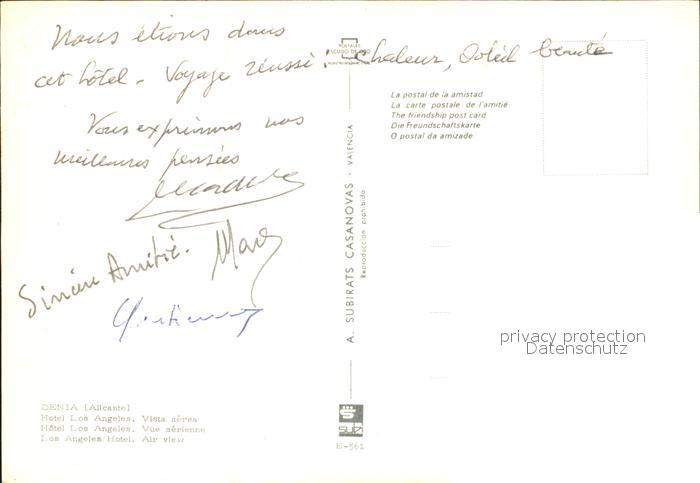 Nous étions dans
cet hôtel. Voyage réussi : chaleur, soleil beauté
Vous exprimons nos
meilleures pensées
Sincère Amitié.
DENIA (Alicante)
Hotel Los Angeles. Vista aérea
Hôtel Los Angeles. Vue aérienne
Los Angeles Hotel. Air view
POSTALES
ESCUDO DE ORO
A. SUBIRATS CASANOVAS - VALENCIA
Reproducción prohibida
E-561
La postal de la amistad
La carte postale de l'amitié
The friendship post card
Die Freundschaftskarte
O postal da amizade
privacy protection
Datenschutz